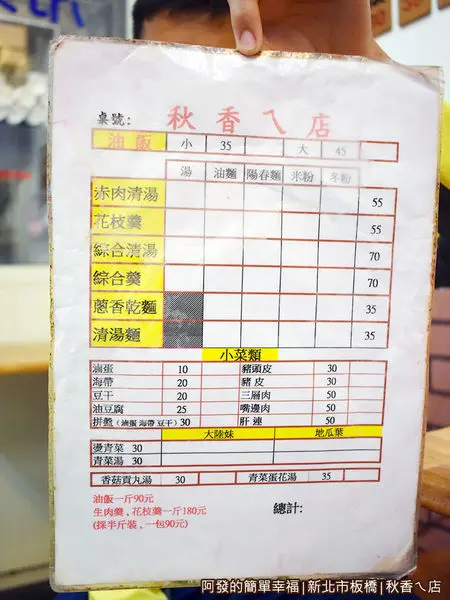 桌號: 秋香ㄟ店
油飯 小 35 大 45
湯 油麵 陽春麵 米粉 冬粉
赤肉清湯 55
花枝羹 55
綜合清湯 70
綜合羹 70
蔥香乾麵 35
清湯麵 35
小菜類
滷蛋 10 豬頭皮 30
海帶 20 豬皮 30
豆干 20 三層肉 50
油豆腐 25 嘴邊肉 50
拼盤(滷蛋 海帶 豆干) 30 肝連 50
大陸妹 地瓜葉
燙青菜 30
青菜湯 30
香菇貢丸湯 30 青菜蛋花湯 35
油飯一斤90元
生肉羹, 花枝羹一斤180元
(採半斤裝, 一包90元)
總計:
阿發的簡單幸福|新北市板橋|秋香ㄟ店